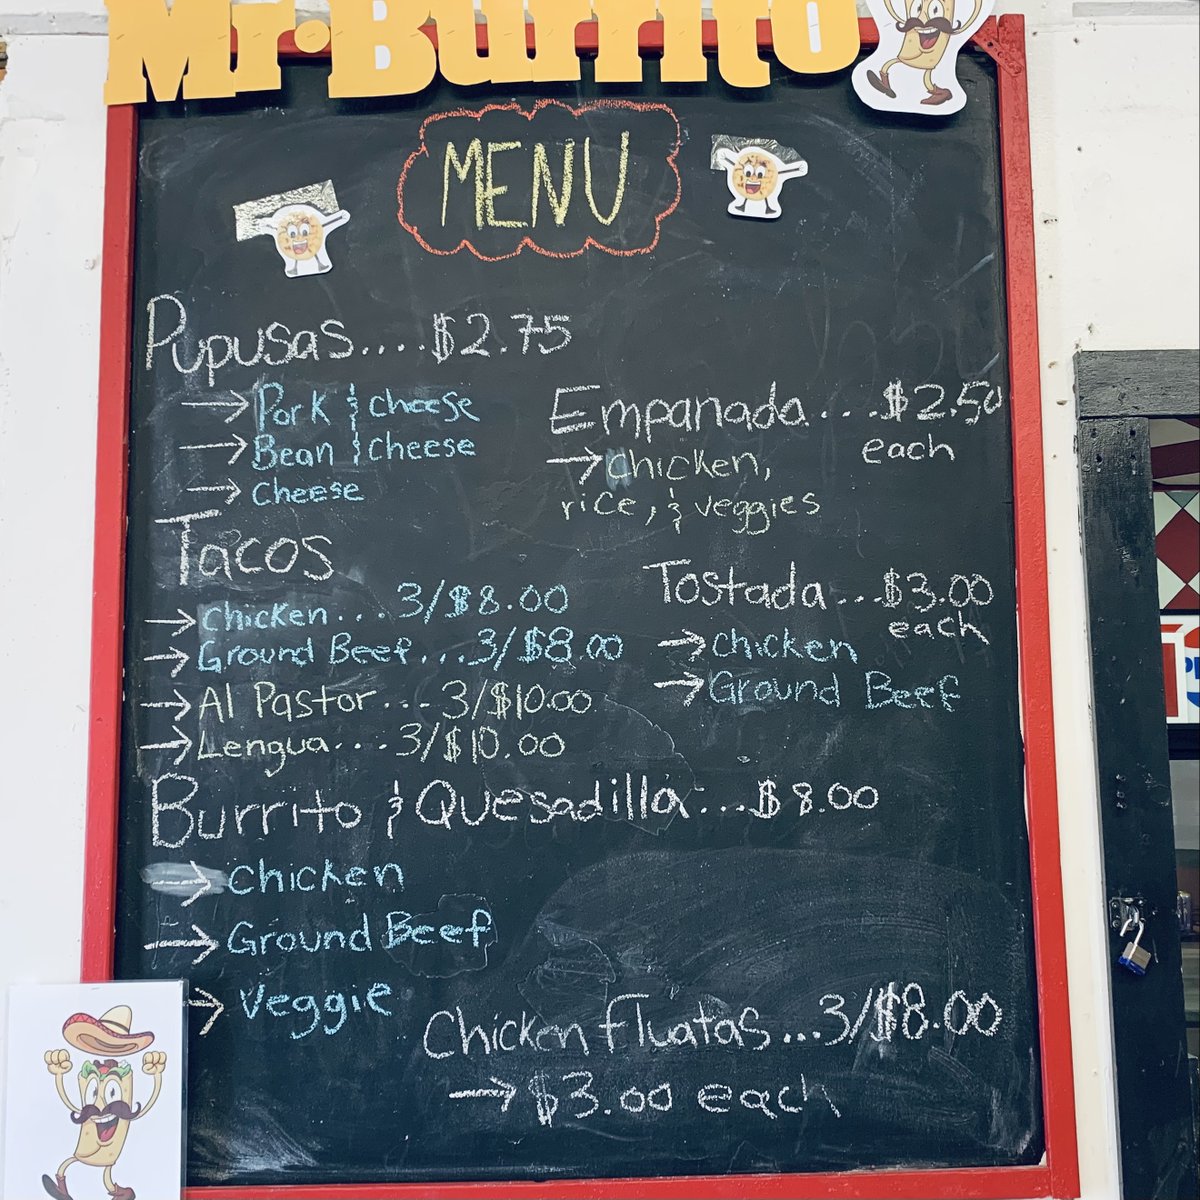 Mr. Burrito
MENU
Pupusas....$2.75
→ Pork & cheese
→ Bean & cheese
→ cheese
Empanada...$2.50
each
→ chicken,
rice, & veggies
Tacos
→ chicken...3/$8.00
→ Ground Beef...3/$8.00
→ Al Pastor...3/$10.00
→ Lengua....3/$10.00
Tostada...$3.00
each
→ chicken
→ Ground Beef
Burrito & Quesadilla...$8.00
→ chicken
→ Ground Beef
→ veggie
Chicken fluatas...3/$8.00
→ $3.00 each